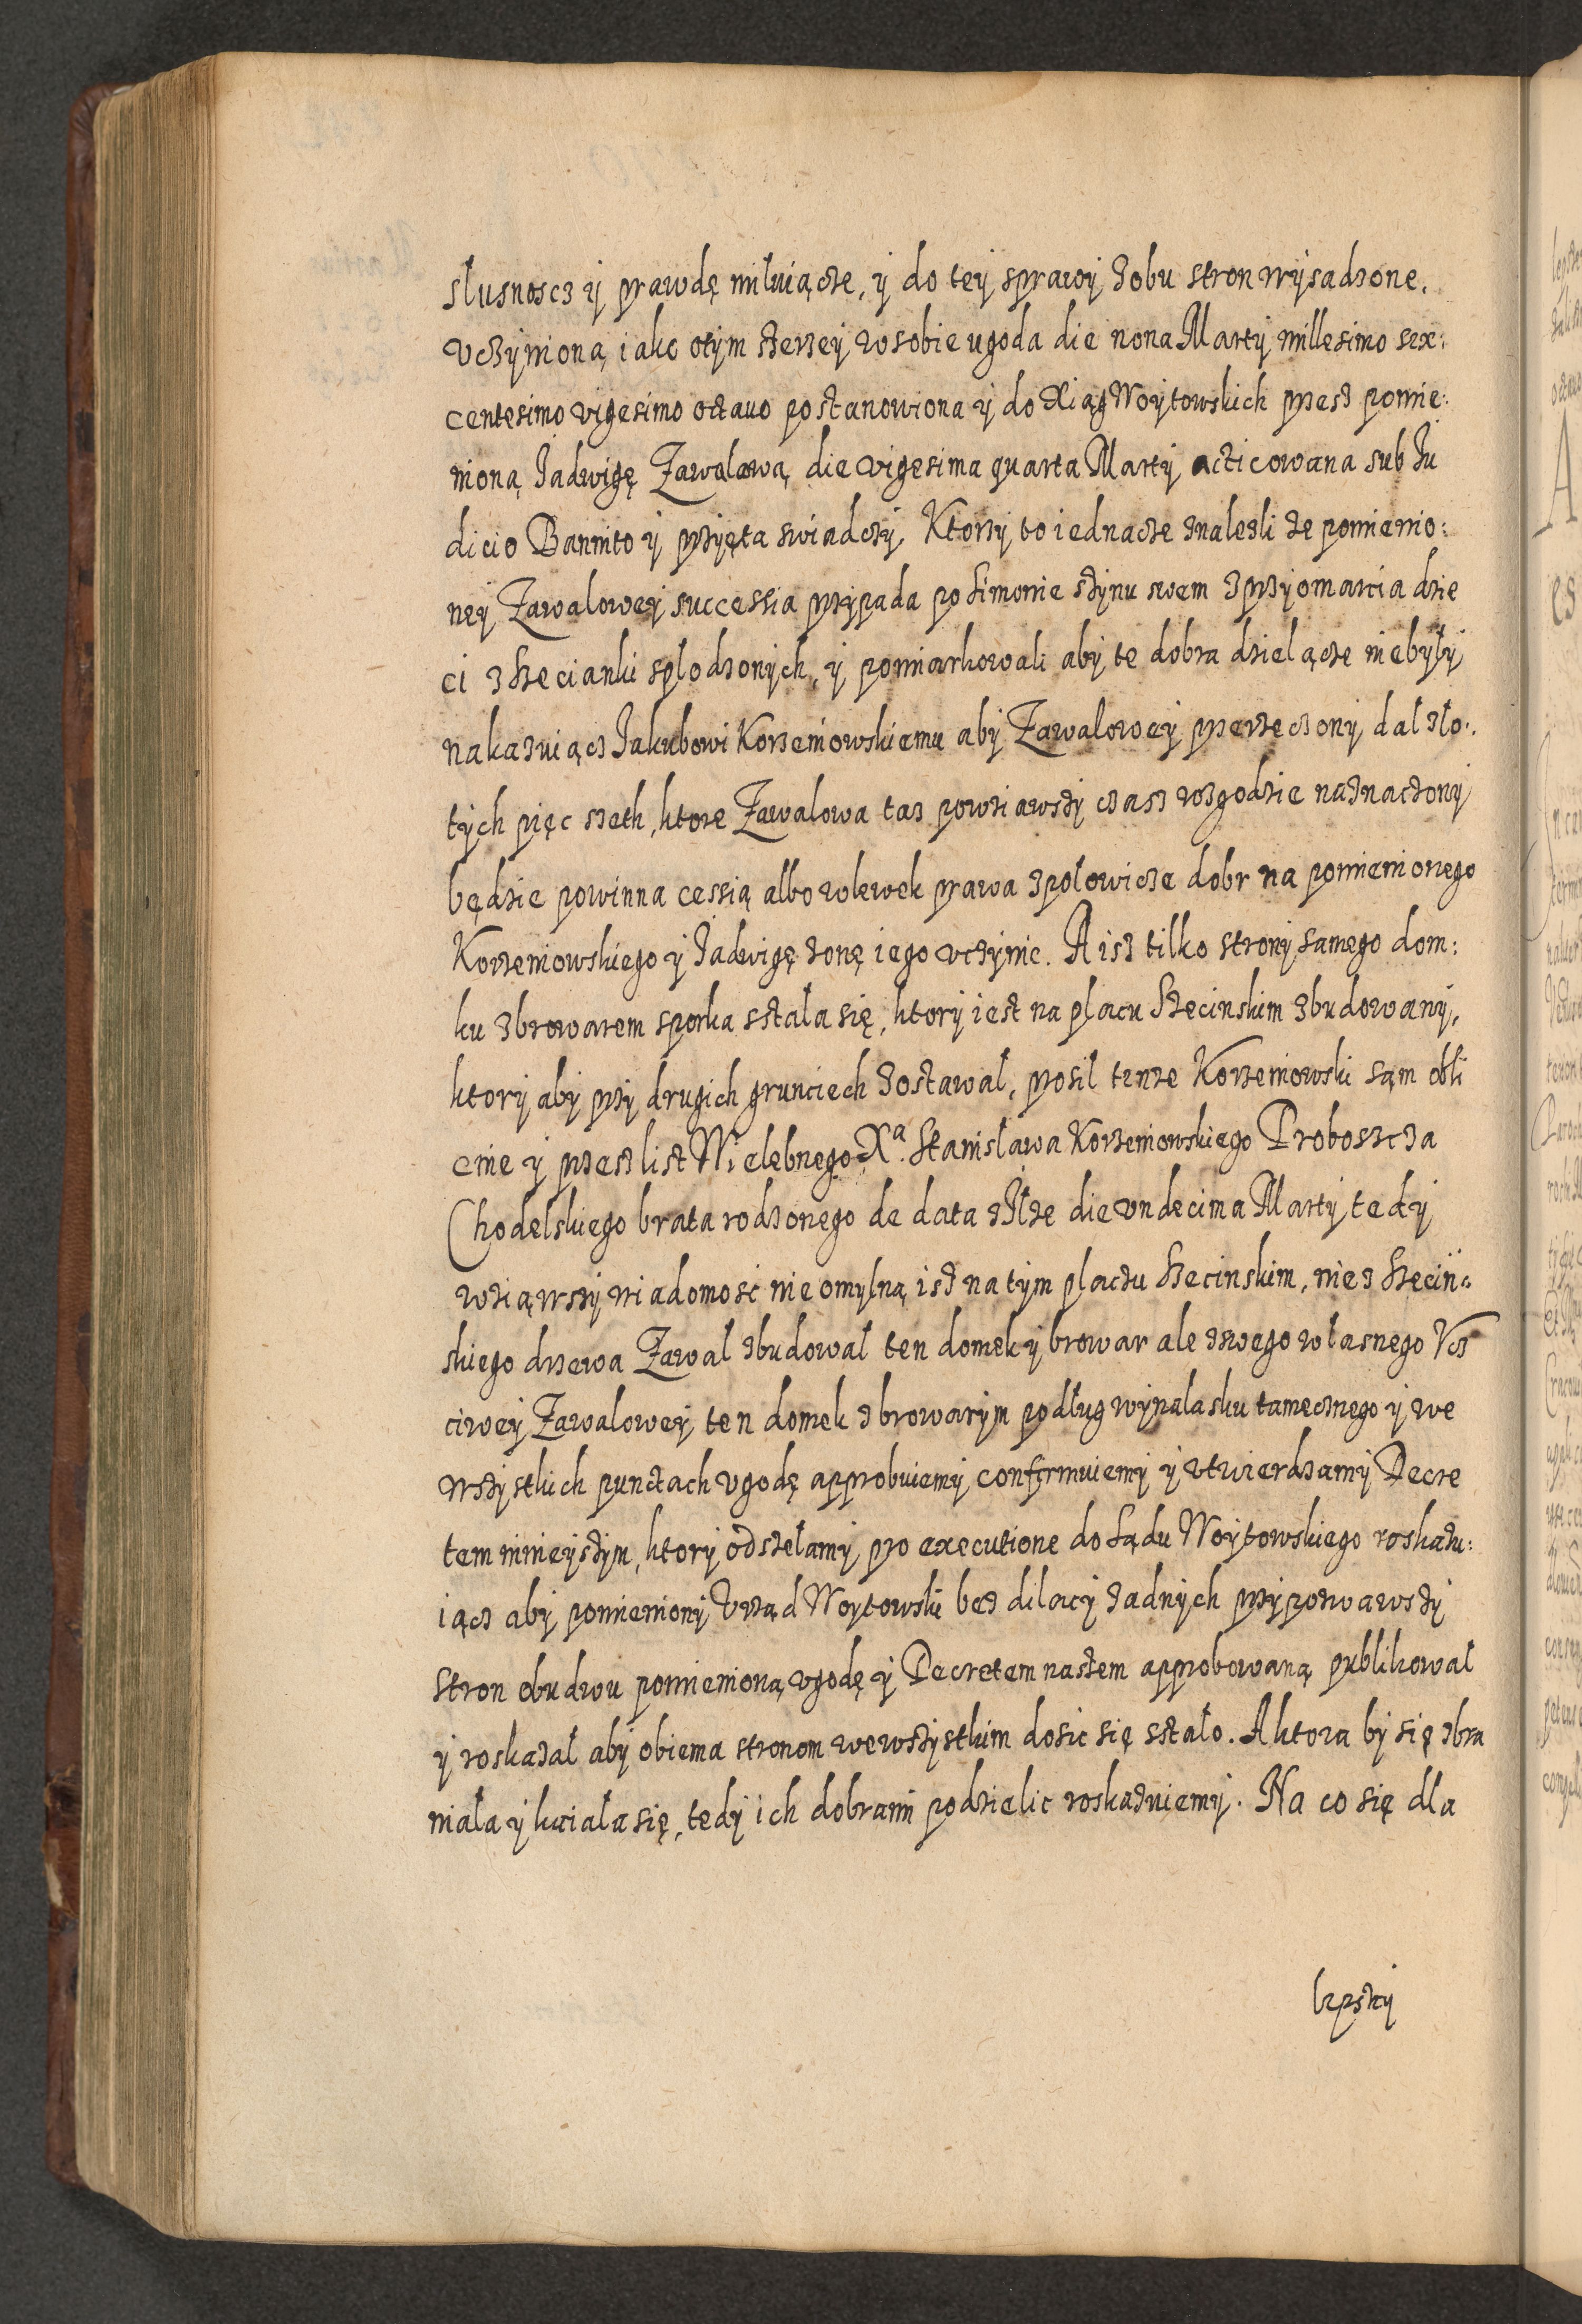 slusnoscz y prawdę miluiącze, y do tey sprawy zobu stron wysadzone.
vczyniona, iako otym szerzey wsobie ugoda die nona Marty millesimo sex:
centesimo vigesimo octauo postanowiona y do Xiąg Woytowskich przez pomie:
nioną Jadwigę Zawalową die vigesima quarta Marty acticowana sub Ju
dicio Bannito y przyęta swiadczy. Ktorzy to iednacze znalezli że pomienio:
ney Zawalowey successia przypada po Simonie synu swem z przyomarcia dzie
ci z Szecianki splodzonych, y pomiarkowali aby te dobra dzielącze niebyły
nakazuiącz Jakubowi Korzeniowskiemu aby Zawalowey przerzeczony dal zło:
tych pięc szeth, ktore Zawalowa taz powziawszy czasz wzgodzie naznaczony
będzie powinna cessią albo wlewek prawa zpołowicze dobr na pomienionego
Korzeniowskiego y Jadwigę żonę iego vczynic. A isz tilko strony samego dom:
ku zbrowarem sporka sstała się, ktory iest na placu Szecinskim zbudowany,
ktory aby przy drugich grunciech zostawal, prosil tenze Korzeniowski sąm obli
cnie y przez list Wielebnego Xa. Stanislawa Korzeniowskiego Proboszcza
Chodelskiego brata rodzonego de data z Iłże die vndecima Marty tedy
wziąwszy wiadomość nieomylną isz na tym placzu Szecinskim, nie z Szecin:
skiego drzewa Zawal zbudował ten domek y browar ale zswego własnego Vcz
ciwey Zawalowey ten domek z browarym podług wynalasku tamecznego y we
wszystkich punctach vgodę approbuiemy confirmuiemy y vtwierdzamy Decre
tem ninieyszym, ktory odszełamy pro executione do Sądu Woytowskiego roskazu:
iącz aby pomieniony Vrząd Woytowski bez dilacy żadnych przypozwawszy
stron obudwu pomienioną vgodę y Decretem naszem approbowaną publikował
y roskazał aby obiema stronom wewszystkim dosic się sstało. A ktora by się zbra
niała y kciała się, tedy ich dobrami podzielic roskazuiemy. Na co się dla
lepszy